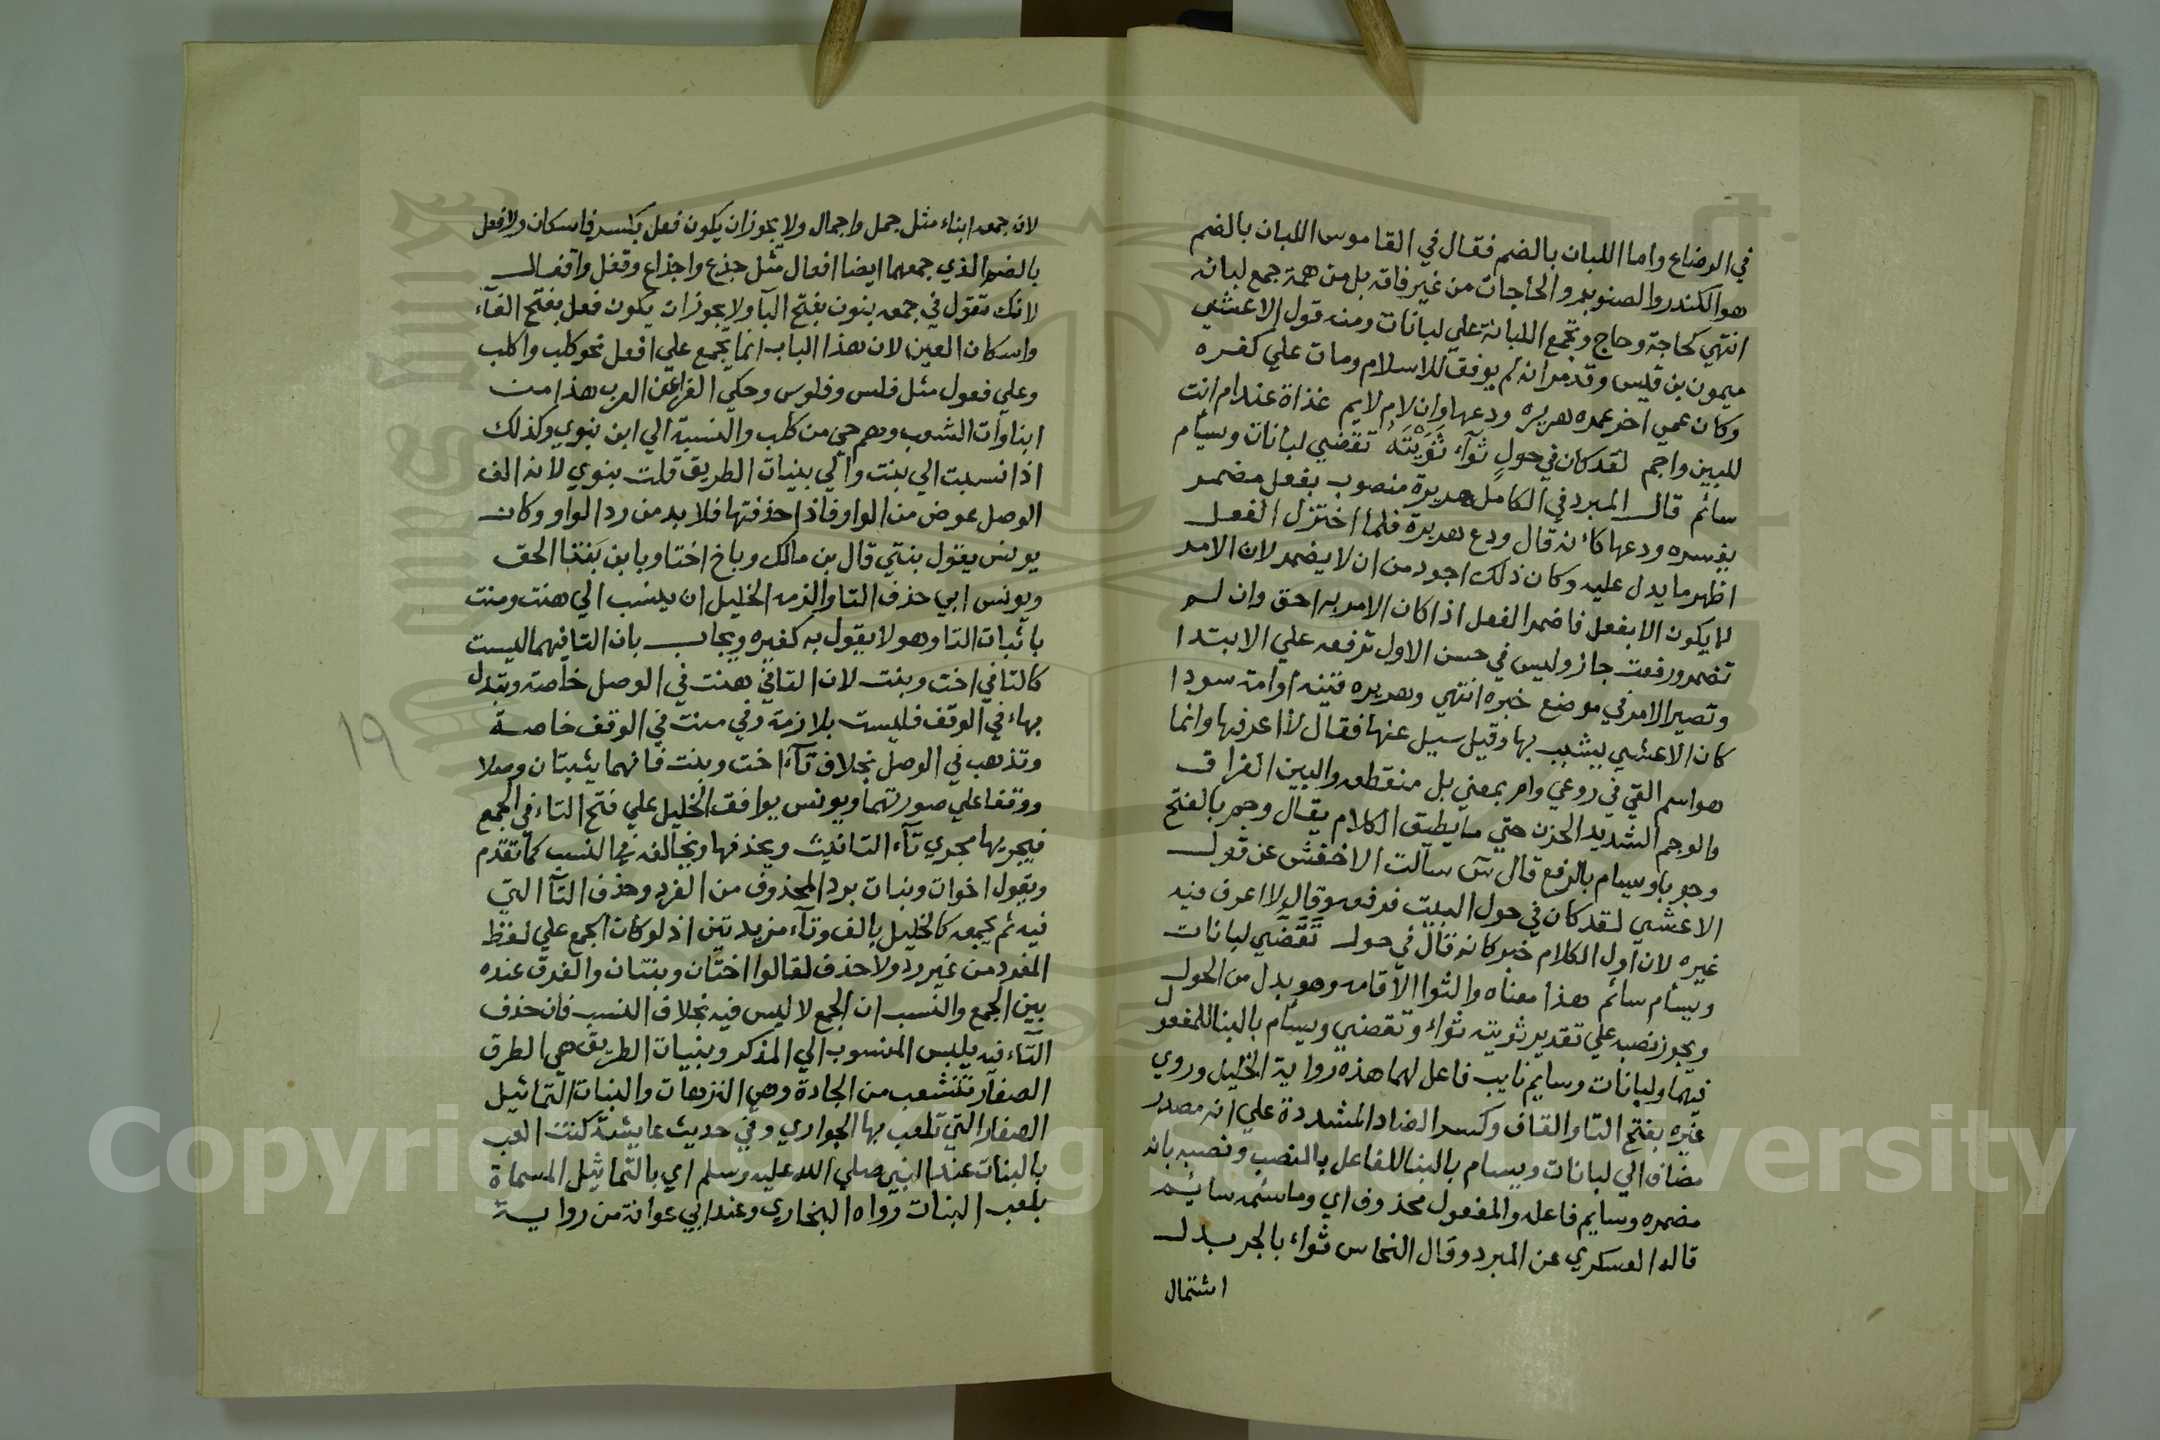 في الرضاع واما اللبان بالضم فقال في القاموس اللبان بالضم
هو الكندر والصنوبر والحاجات من غير فاقه بل من همة جمع لبانه
انتهي كحاجة وحاج وتجمع اللبانة علي لبانات ومنه قول الاعشي
ميمون بن قيس وقد مر انه لم يوفق للاسلام ومات علي كفره
وكان عمي اخر عمره هريره ودعها وان لام لايم غذاة عند ام انت
للبين واجم لقد كان في حولٍ ثوآء ثَوَيْتَهُ تقضي لبانات وسيأم
سائم قال المبرد في الكامل هريرة منصوب بفعل مضمر
يفسره ودعها كانه قال ودع هريرة فلما اختزل الفعل
اظهر ما يدل عليه وكان ذلك اجود من ان لا يضمر لان الامر
لا يكون الا بفعل فاضمر الفعل اذا كان الامر به احق وان لم
تضمر ورفعت جاز وليس في حسن الاول ترفعه علي الابتدا
وتصير الامر في موضع خبره انتهي وهريره قينه او امة سودا
كان الاعشي يشبب بها وقيل سيل عنها فقال لا اعرفها وانما
هو اسم القي في روعي وام بمعني بل منقطعه والبين الفراق
والوجم الشديد الحزن حتي ما يطيق الكلام يقال وجم بالفتح
وجوبا ويسام بالرفع قال س سألت الاخفش عن قول
الاعشي لقد كان في حول البيت فرفعه وقال لا اعرف فيه
غيره لان اول الكلام خبر كانه قال في حول تَقَضِّي لبانات
ويسأم سائم هذا معناه والثوا الاقامه وهو بدل من الحول
ويجوز نصبه علي تقدير ثويته ثواء وتقضي ويسأم بالبنا للمفعول
فيهما ولبانات وسايم نايب فاعل لهما هذه رواية الخليل وروي
غيره بفتح التا والقاف وكسر الضاد المشددة علي انه مصدر
مضاف الي لبانات ويسام بالبنا للفاعل بالنصب ونصبه بان
مضمره وسايم فاعله والمفعول محذوف اي وما سئمه سائم
قاله العسكري عن المبرد وقال النحاس ثواء بالجر بدل
اشتمال
لان جمعه ابناء مثل جمل واجمال ولا يجوز ان يكون فعل بكسر فاسكان ولا فعل
بالضم الذي جمعهما ايضا افعال مثل جذع واجذاع وقفل واقفال
لانك تقول في جمعه بنون بفتح البآ ولا يجوز ان يكون فعل بفتح الفآء
واسكان العين لان هذا الباب انما يجمع علي افعل نحو كلب واكلب
وعلي فعول مثل فلس وفلوس وحكي الفرا عن العرب هذا من
ابناوات الشعوب وهم حي من كلب والنسبة الي ابن بنوي وكذلك
اذا نسبت الي بنت والي بنيات الطريق قلت بنوي لانه الف
الوصل عوض من الواو فاذا حذفتها فلا بد من رد الواو وكان
يونس يقول بنتي قال بن مالك وباخ اختا وبابن بَنتا الحق
ويونس ابي حذف التا والزمه الخليل ان ينسب الي هنت ومنت
باثبات التا وهو لا يقول به كغيره ويجاب بان التا فيهما ليست
كالتا في اخت وبنت لان التا في هنت في الوصل خاصة وتبدل
بهاء في الوقف فليست بلازمة وفي منت في الوقف خاصة
وتذهب في الوصل بخلاف تآء اخت وبنت فانهما يثبتان وصلا
ووقفا علي صورتهما ويونس يوافق الخليل علي فتح التاء في الجمع
فيجريها مجري تآء التانيث ويحذفها ويخالفه في النسب كما تقدم
ويقول اخوات وبنات برد المحذوف من الفرد وحذف التآ التي
فيه ثم يجمعه كالخليل بالف وتآء مزيدتين اذ لو كان الجمع علي لفظ
المفرد من غير رد ولا حذف لقالوا اختان وبنتان والفرق عنده
بين الجمع والنسب ان الجمع لا ليس فيه بخلاف النسب فان حذف
التآء فيه يلبس المنسوب الي المذكر وبنيات الطريق هي الطرق
الصغار تتشعب من الجادة وهي النزهات والبنات التماثيل
الصغار التي تلعب بها الجواري وفي حديث عايشة كنت العب
بالبنات عند النبي صلي الله عليه وسلم اي بالتماثيل المسماة
بلعب البنات رواه البخاري وعند ابي عوانة من رواية
١٩
Copyright © King Saud University